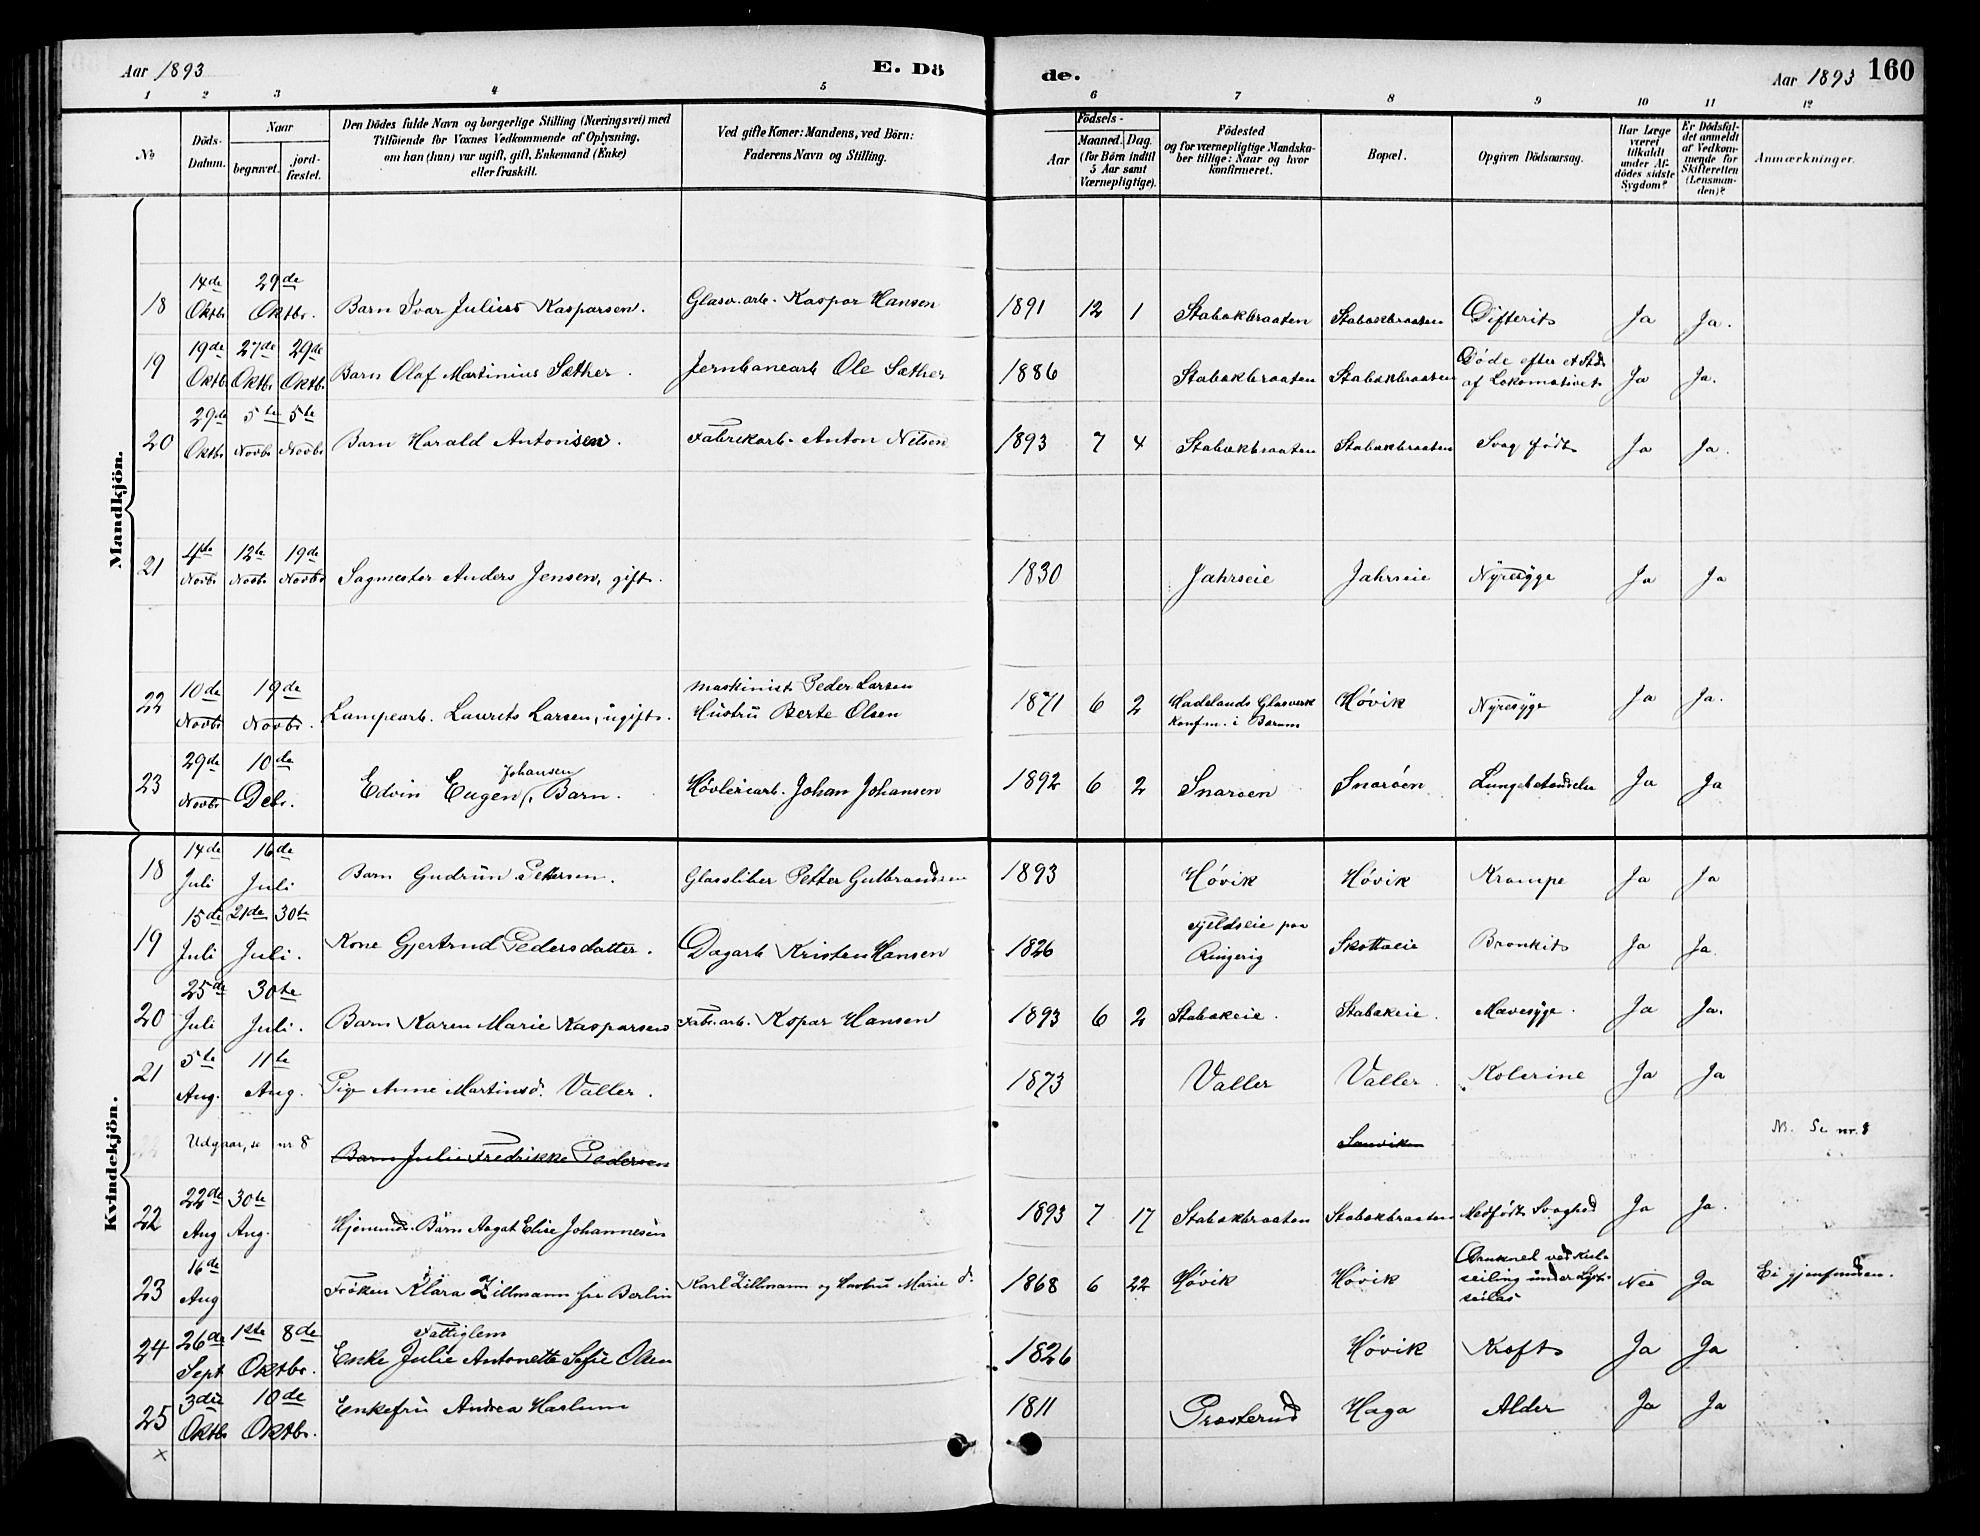 Aar 1893
E. Dö
de.
Aar 1893 160
1 2 3 4 5 6 7 8 9 10 11 12
No
Döds-Datum.
Naar
begravet.
jord-fæstet.
Den Dödes fulde Navn og borgerlige Stilling (Næringsvei) med
Tilföiende for Voxnes Vedkommende af Oplysning,
om han (hun) var ugift, gift, Enkemand (Enke)
eller fraskilt.
Ved gifte Koner: Mandens, ved Börn:
Faderens Navn og Stilling.
Födsels-
Aar
Maaned. Dag.
(for Børn indtil
5 Aar samt
Værnepligtige).
Födested
og for værnepligtige Mandska-
ber tillige: Naar og hvor
konfirmeret.
Bopæl.
Opgiven Dödsaarsag.
Har Læge
været
tilkaldt
under Af-
dödes sidste
Sygdom?
Er Dödsfal-
det anmeldt
af Vedkom-
mende for
Skifteretten
(Lensman-
den)?
Anmærkninger.
Mandkjön.
14de 29de
18 Oktbr Oktbr. Barn Ivar Julius Kasparsen. Glasv. arb. Kaspar Hansen 1891 12 1 Stabækbraaten Stabækbraaten Difterit Ja Ja.
19de 27de 29de
19 Oktbr Oktbr Oktbr Barn Olaf Martinius Sæther. Jernbanearb Ole Sæther 1886 Stabækbraaten Stabækbraaten Døde efter et Stød
af Lokomotivet Ja Ja.
29de 5te 5te
20 Oktbr Novbr Novbr Barn Harald Antonsen. Fabrikarb. Anton Nilsen 1893 7 4 Stabækbraaten Stabækbraaten Svag født Ja Ja.
4de 12te 19de
21 Novbr Novbr Novbr Sagmester Anders Jensen, gift. 1830 Jahrseie Jahrseie Nyresyge Ja Ja
10de 19de
Maskinist Peder Larsen
22 Novbr Novbr. Lampearb. Laurits Larsen, ugift. Hustru Berte Olsen 1871 6 2 Hadelands Glasverk
Konfm. i Bærum Høvik Nyresyge Ja Ja.
29de 10de
Johansen
23 Novbr Debr. Edvin Eugen, Barn. Høvleriarb. Johan Johansen 1892 6 2 Snarøen Snarøen Lungebetændelse Ja Ja
Kvindekjön.
14de 16de
18 Juli Juli Barn Gudrun Pettersen. Glassliber Petter Gulbrandsen 1893 Høvik Høvik Krampe Ja Ja
15de 21de 30te
19 Juli Juli. Kone Gjertrud Pedersdatter. Dagarb Kristen Hansen 1826 Fjeldseie paa
Ringerig Skottaeie Bronkit Ja Ja.
25de 30te
20 Juli Juli. Barn Karen Marie Kasparsen Fabr. arb. Kspar Hansen 1893 6 2 Stabækeie. Stabækeie. Mavesyge. Ja Ja.
5te 11te
21 Aug. Aug. Pige Anne Martinsd. Valler. 1873 Valler Valler. Kolerine Ja Ja
Udgaar, se nr 8 Barn Julie Fredrikke Pedersen Sanviken NB. Se nr. 8
22de 30te
22 Aug Aug. Hjemmed. Barn Aagat Elise Johannesen 1893 7 17 Stabækbraaten Stabækbraaten Medfødt Svaghed Ja Ja.
16de
23 Aug Frøken Klara Zillmann fra Berlin Karl Zillmann og Hustru Marie d. 1868 6 22 Høvik Høvik Druknet ved Kul-
seiling under Lyst-
seilas Nei Ja Ei gjenfunden.
26de 1ste 8de
Fattiglem
24 Sept Oktbr. Enke Julie Antonette Sofie Olsen 1826 Høvik Kræft Ja Ja
3die 10de
25 Oktbr Oktbr. Enkefru Andrea Harlum 1811 Præsterud Haga Alder Ja Ja
x